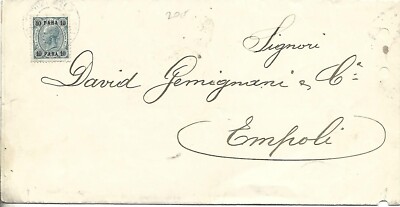 10 PARA 10
10 PARA 10
Signori
David Gemignani & Cª
Empoli